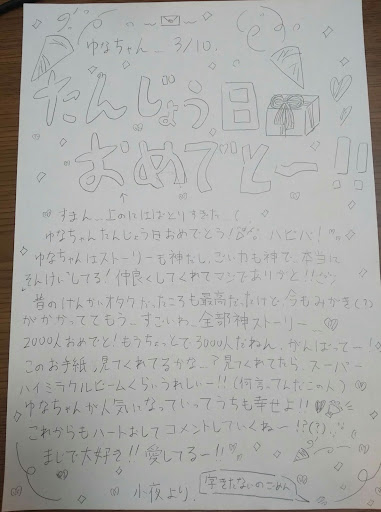 ゆなちゃん 3/10.
たんじょう日
おめでとー!!
↑
すまん…上のにはばとりすぎた…(
ゆなちゃんたんじょう日おめでとう! ハピバ!
ゆなちゃんはストーリーも神だし、も神で、本当に
そんけいしてる! 仲良くしてくれてマジでありがと!!
昔のけんかいオタクだったころも最高だったけど今もみがき(?)
がかかっててもう…すごいわ…全部神ストーリー…
2000人おめでと!もうちょっとで3000人だねん、がんばってー!
このお手紙、見てくれてるかな…?見てくれてたら、スーパー
ハイミラクルビームくらいうれしいー!!(何言ってんだこの人)
ゆなちゃんが人気になっていってうちも幸せよ!!
これからもハートおしてコメントしていくねー!?(?)
まじで大好き!!愛してるー!!
小夜より、
字きたないのごめん